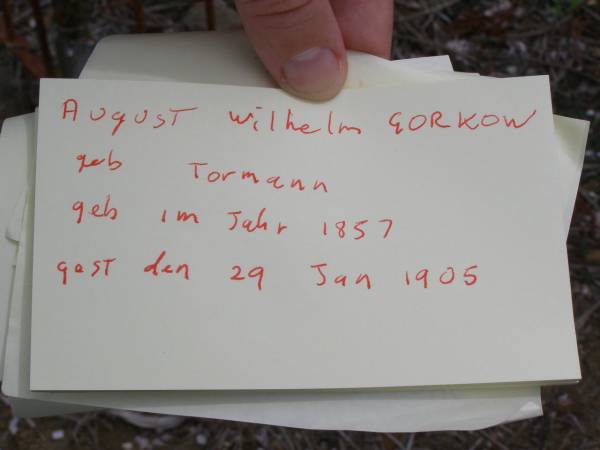 August Wilhelm GORKOW
geb Tormann
geb im Jahr 1857
gest den 29 Jan 1905